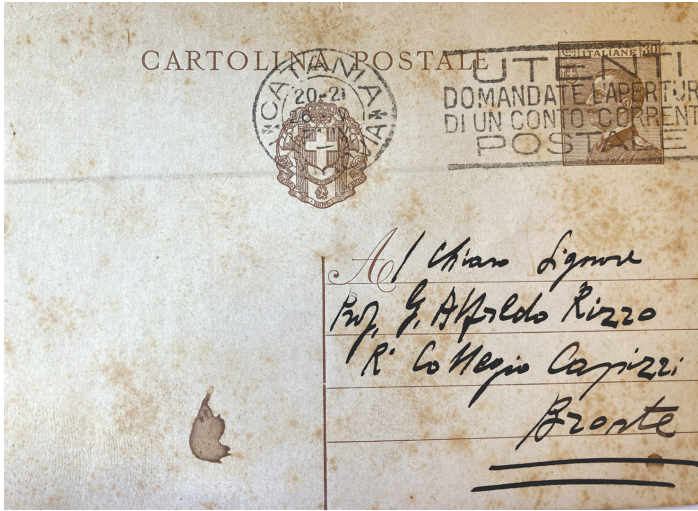 CARTOLINA POSTALE
CATANIA
20-21
ITALIANE 30
UTENTI
DOMANDATE L'APERTUR
DI UN CONTO CORRENT
POSTALE
Al Chiaro Signore
Prof. G. Alfredo Rizzo
R° Collegio Capizzi
Bronte